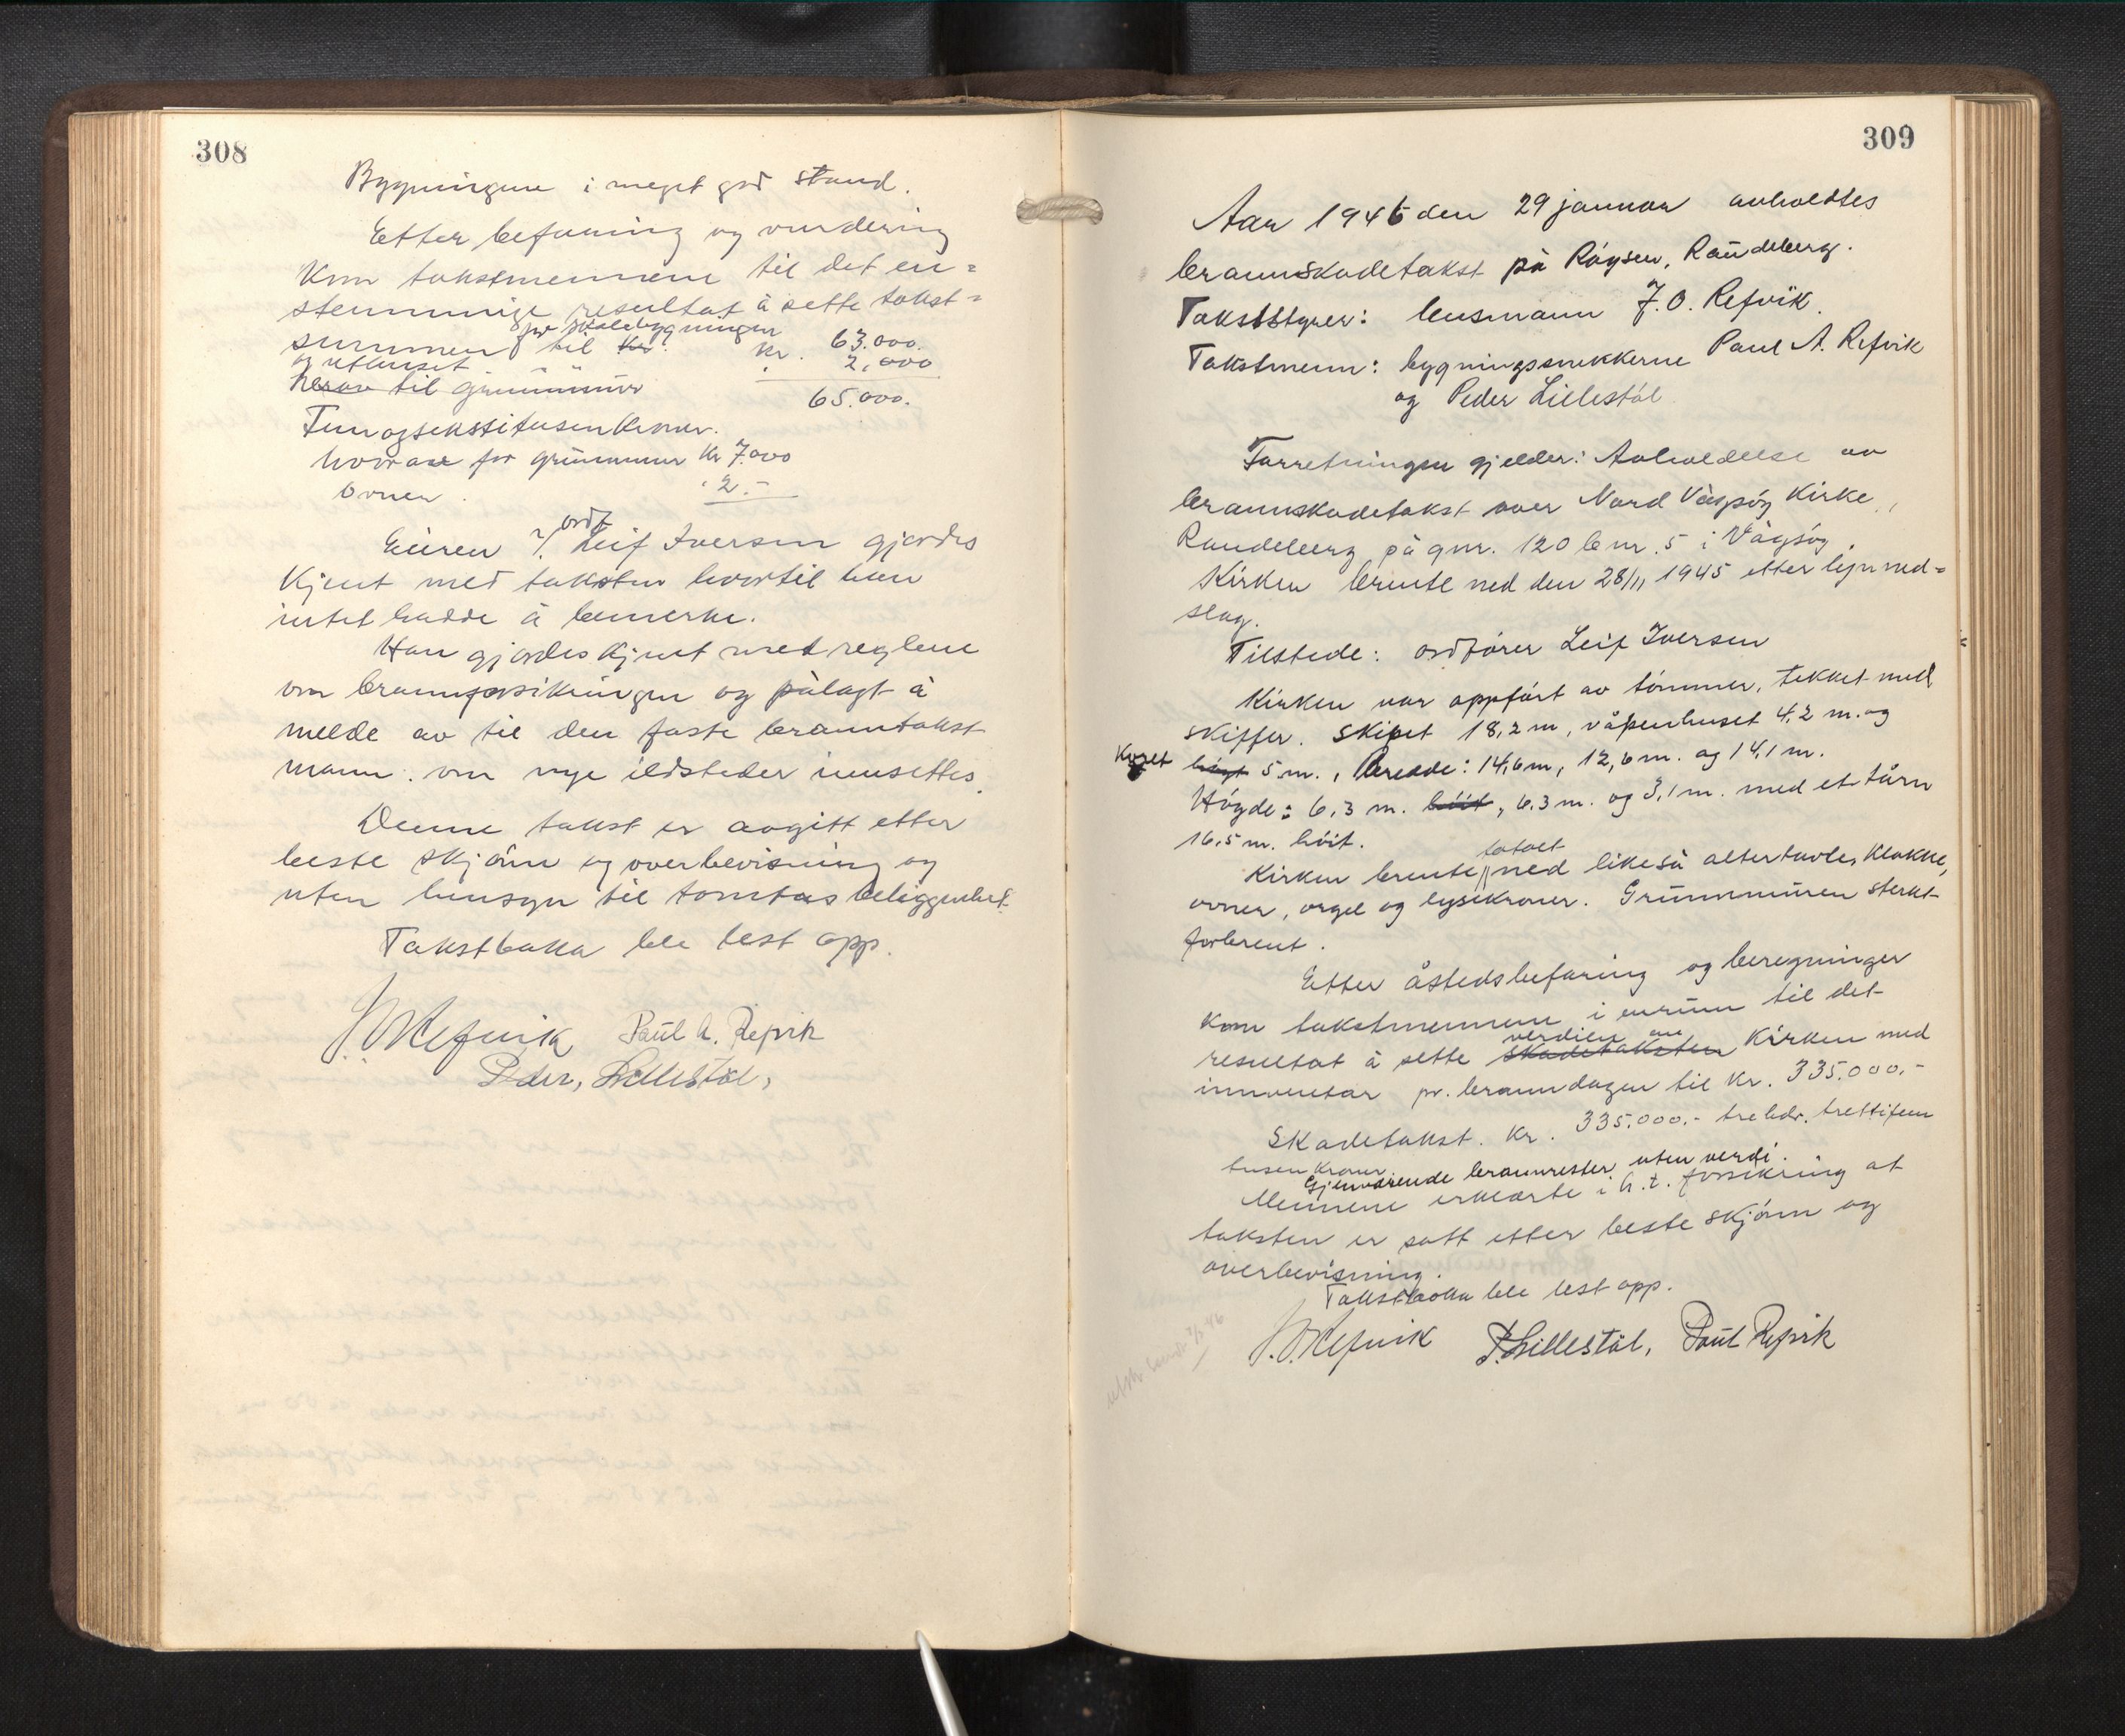 308
Bygningene i meget god stand.
Etter befaring og vurdering
kom takstmennene til det en=
stemmige resultat å sette takst=
for skolebygningen
summen til kr. kr. 63.000.
og uthuset " " . 2,000
herav til grunnmur
65.000.
Femogsekstitusen kroner.
hvorav for grunnmur kr 7.000
ovner. " 2.-
ordf
Eieren v/. Leif Iversen gjordes
kjent med taksten hvortil han
intet hadde å bemerke.
Han gjordes kjent med reglene
om brannforsikringen og pålagt å
melde av til den faste branntakst
mann. om nye ildsteder innsettes.
Denne takst er avgitt etter
beste skjønn og overbevisning og
uten hensyn til tomtas beliggenhet.
Takstboka ble lest opp.
J.O. Refvik Paul A. Refvik
Peder, Lillestøl,
309
Aar 1946 den 29 januar avholdtes
brannskadetakst på Röysen, Raudeberg.
Takststyrer: lensmann J. O. Refvik.
Takstmenn: bygningssnekkerne Paul A. Refvik
og Peder Lillestöl
Forretningen gjelder: Avholdelse av
brannskadetakst over Nord Vågsöy Kirke,
Raudeberg på gnr. 120 bnr. 5 i Vågsöy.
Kirken brente ned den 28/11 1945 etter lynned=
slag.
Tilstede: ordförer Leif Iversen
Kirken var oppfört av tömmer, tekket med
skiffer. Skipet 18,2 m, våpenhuset 4,2 m. og
Koret högt 5 m., Bredde: 14,6 m, 12,6 m. og 14,1 m.
Høyde: 6,3 m. höit, 6,3 m. og 3,1 m. med et tårn
16,5 m. höit.
totalt
Kirken brente ned likeså altertavle, klokke,
ovner, orgel og lysekroner. Grunnmuren sterkt
forbrent.
Etter åstedsbefaring og beregninger
kom takstmennene i enrum til det
verdien av
resultat å sette skadetaksten Kirken med
innventar pr. branndagen til kr. 335.000.-
Skadetakst. kr. 335.000.- trehdr. trettifem
tusen kroner.
Gjenværende brannrester uten verdi.
Mennene erklærte i h.t. forsikring at
taksten er satt etter beste skjönn og
overbevisning.
Takstboka ble lest opp.
J.O. Refvik P. Lillestöl, Paul Refvik